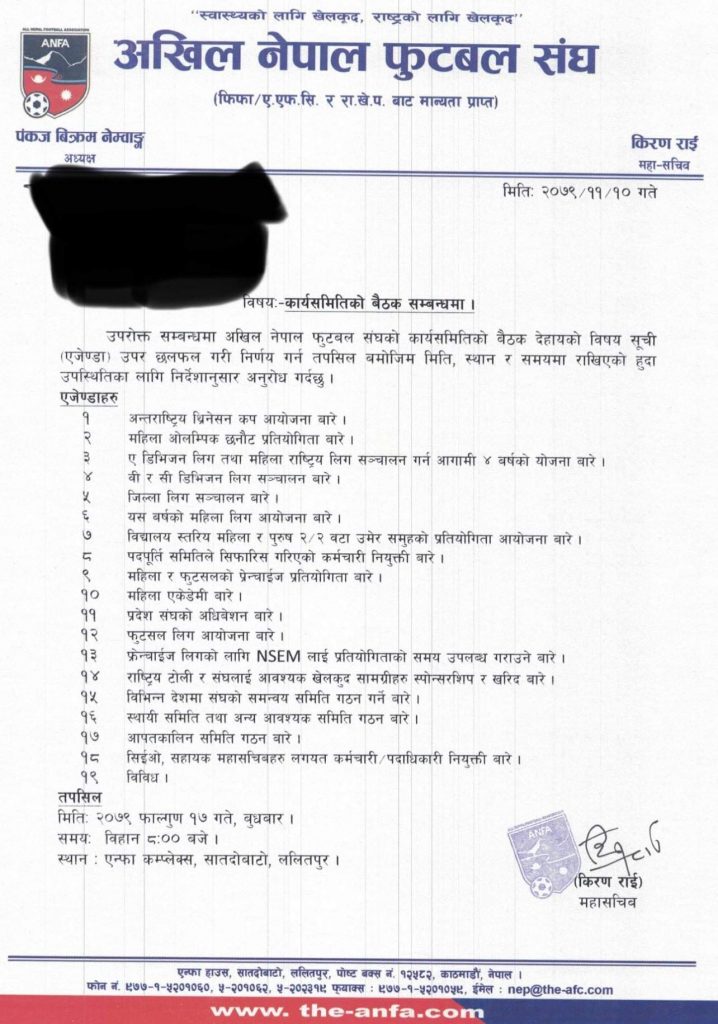 "स्वास्थ्यको लागि खेलकूद, राष्ट्रको लागि खेलकूद"
ALL NEPAL FOOTBALL ASSOCIATION
ANFA
अखिल नेपाल फुटबल संघ
(फिफा/ए.एफ.सि. र रा.खे.प. बाट मान्यता प्राप्त)
पंकज बिक्रम नेम्वाङ्ग
अध्यक्ष
किरण राई
महा-सचिव
मितिः २०७९/११/१० गते
विषयः-कार्यसमितिको बैठक सम्बन्धमा ।
उपरोक्त सम्बन्धमा अखिल नेपाल फुटबल संघको कार्यसमितिको बैठक देहायको विषय सूची
(एजेण्डा) उपर छलफल गरी निर्णय गर्न तपसिल बमोजिम मिति, स्थान र समयमा राखिएको हुदा
उपस्थितिका लागि निर्देशानुसार अनुरोध गर्दछु ।
एजेण्डाहरु
१ अन्तराष्ट्रिय थ्रिनेसन कप आयोजना बारे ।
२ महिला ओलम्पिक छनौट प्रतियोगिता बारे ।
३ ए डिभिजन लिग तथा महिला राष्ट्रिय लिग सञ्चालन गर्न आगामी ४ बर्षको योजना बारे ।
४ वी र सी डिभिजन लिग सञ्चालन बारे ।
५ जिल्ला लिग सञ्चालन बारे ।
६ यस बर्षको महिला लिग आयोजना बारे ।
७ विद्यालय स्तरिय महिला र पुरुष २/२ वटा उमेर समुहको प्रतियोगिता आयोजना बारे ।
८ पदपूर्ति समितिले सिफारिस गरिएको कर्मचारी नियुक्ती बारे ।
९ महिला र फुटसलको प्रेन्चाईज प्रतियोगिता बारे ।
१० महिला एकेडेमी बारे ।
११ प्रदेश संघको अधिबेशन बारे ।
१२ फुटसल लिग आयोजना बारे ।
१३ फ्रेन्चाईज लिगको लागि NSEM लाई प्रतियोगिताको समय उपलब्ध गराउने बारे ।
१४ राष्ट्रिय टोली र संघलाई आवश्यक खेलकुद सामग्रीहरु स्पोन्सरशिप र खरिद बारे ।
१५ विभिन्न देशमा संघको समन्वय समिति गठन गर्ने बारे ।
१६ स्थायी समिति तथा अन्य आवश्यक समिति गठन बारे ।
१७ आपतकालिन समिति गठन बारे ।
१८ सिईओ, सहायक महासचिबहरु लगयत कर्मचारी/पदाधिकारी नियुक्ती बारे ।
१९ विविध ।
तपसिल
मितिः २०७९ फाल्गुण १७ गते, बुधबार ।
समयः विहान ८:०० बजे ।
स्थान : एन्फा कम्प्लेक्स, सातदोबाटो, ललितपुर ।
ANFA
(किरण राई)
महासचिव
एन्फा हाउस, सातदोबाटो, ललितपुर, पोष्ट बक्स नं. १२५८२, काठमाडौं, नेपाल ।
फोन नं. ९७७-१-५२०१०६०, ५-२०१०६२, ५-२०२३१९ फ्याक्स : ९७७-१-५२०१०५९, ईमेल : nep@the-afc.com
www. the-anfa.com